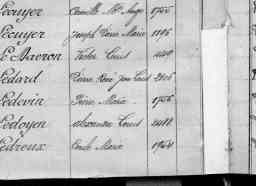 Lécuyer Camille Mie Ange 1755
Lécuyer Joseph Pierre Marie 1196
Le Daëron Victor Louis
Lédard Pierre René Jean Louis 2806
Ledevin Pierre Marie 1756
Ledoyen Alexandre Louis 2488
Ledreux Emile Marie 1964